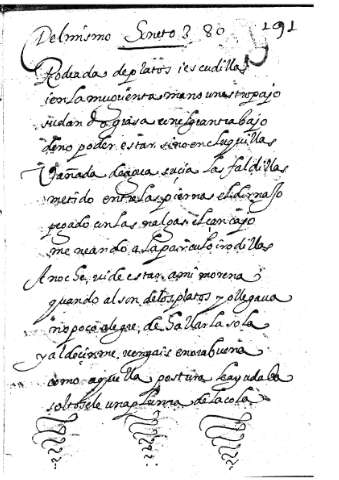 Del mismo Soneto 3 80 191
Rodeada de platos i escudillas
i en la mugrienta mano un estropajo
sudando grasa con el gran trabajo
de no poder estar sino en cuquillas
Vañada de agua sucia las faldillas
metido entre las piernas el
pegado con las nalgas el çancajo
meneando a la par culo i rodillas
Anoche vide estar a mi morena
quando al son de los platos yo llegava
no poco alegre de hallarla sola
y al decirme vengais en ora buena
como aquella postura le ayudaba
soltosele una pluma de la cola